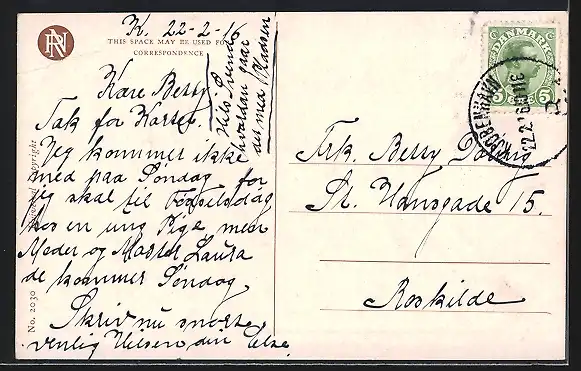 K. 22-2-16
THIS SPACE MAY BE USED FOR
CORRESPONDENCE
Kære Betty.
Tak for Kortet.
Jeg kommer ikke
med paa Søndag for
jeg skal til Fødselsdag
hos en ung Pige, men
Moder og Moster Laura
de kommer Søndag
Skriv nu snart
venlig Hilsen din Else.
Hils Svend
hvordan gaar
det med
No. 2030
Copyright
DANMARK
5 5
KJØBENHAVN
22.2.16
Frk. Betty
St. Hansgade 15.
Roskilde